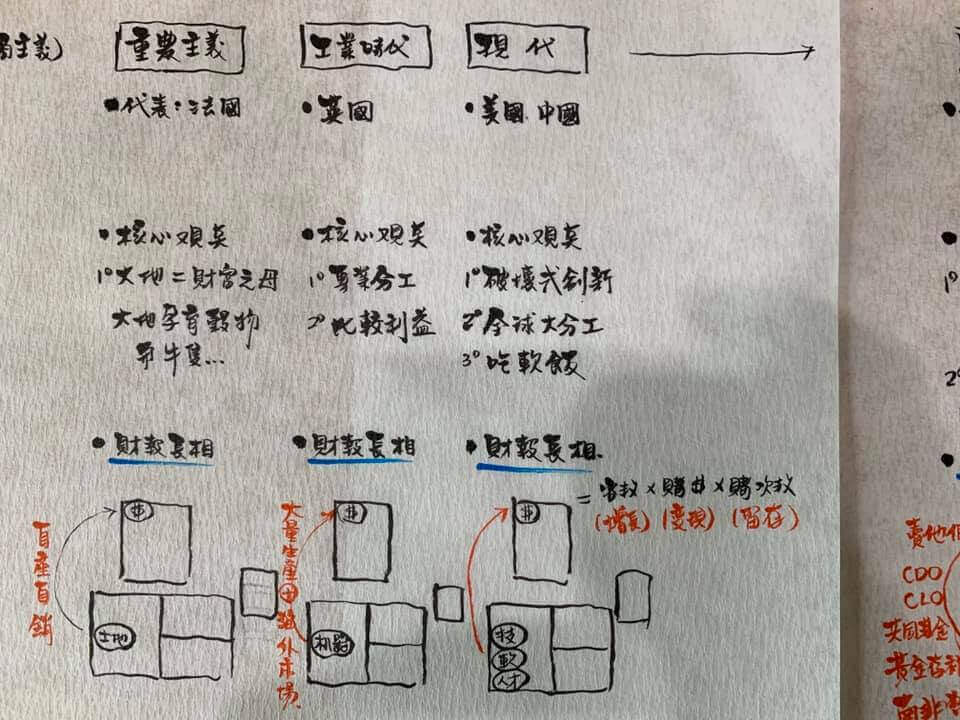 主義)
重農主義
• 代表:法國
• 核心观念
1° 大地=財富之母
大地孕育穀物
和牛隻...
• 財報長相
自產自銷
$
土地
工業時代
• 英國
• 核心观念
1° 專業分工
2° 比較利益
• 財報長相
大量生產 海外市場
$
机器
現代
• 美國.中國
• 核心观念
1° 破壞式創新
2° 全球大分工
3° 吃軟飯
• 財報長相.
$
= 客数 × 購$ × 購次数
(增長) (變現) (留存)
技
軟
人才
1°
2°
賣他
CDO
CLO
共同基金
黃金存